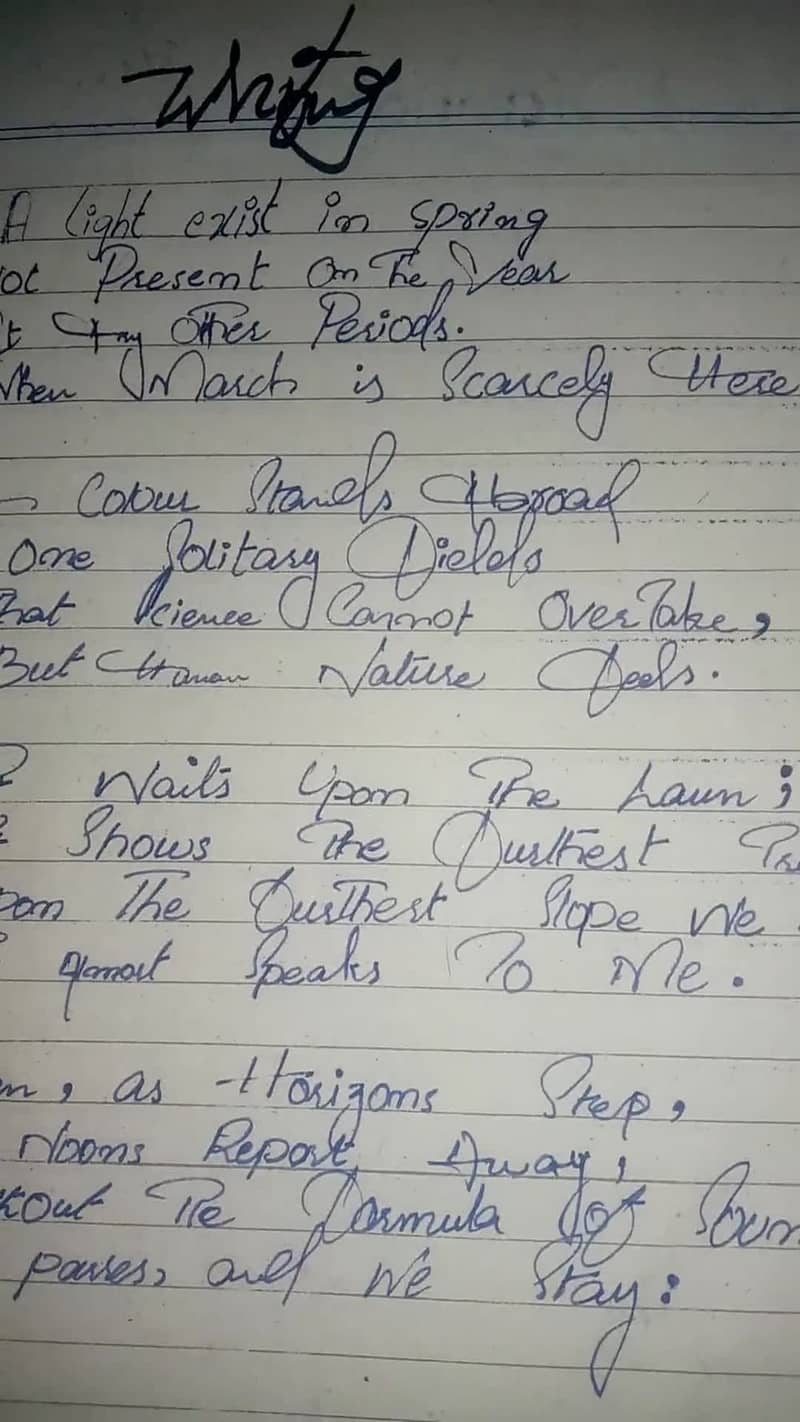 Writing
A light exist in Spring
ot Present On The Year
t Any Other Periods.
when March is Scarcely Here
Colour Stands Abroad
One Solitary Fields
That Science Cannot OverTake,
But Human Nature Feels.
Waits Upon The Lawn;
Shows The Furthest Tre
pon The Furthest Slope We
Almost Speaks To Me.
n, as Horizons Step,
Noons Report Away,
kout The Formula Of Soun
passes, and We Stay: